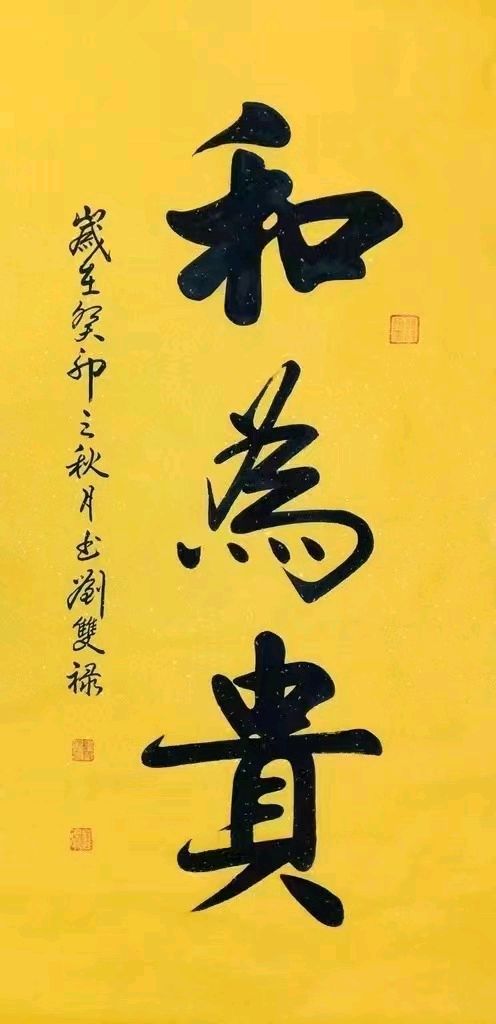 和為貴
歲在癸卯之秋月書劉雙祿